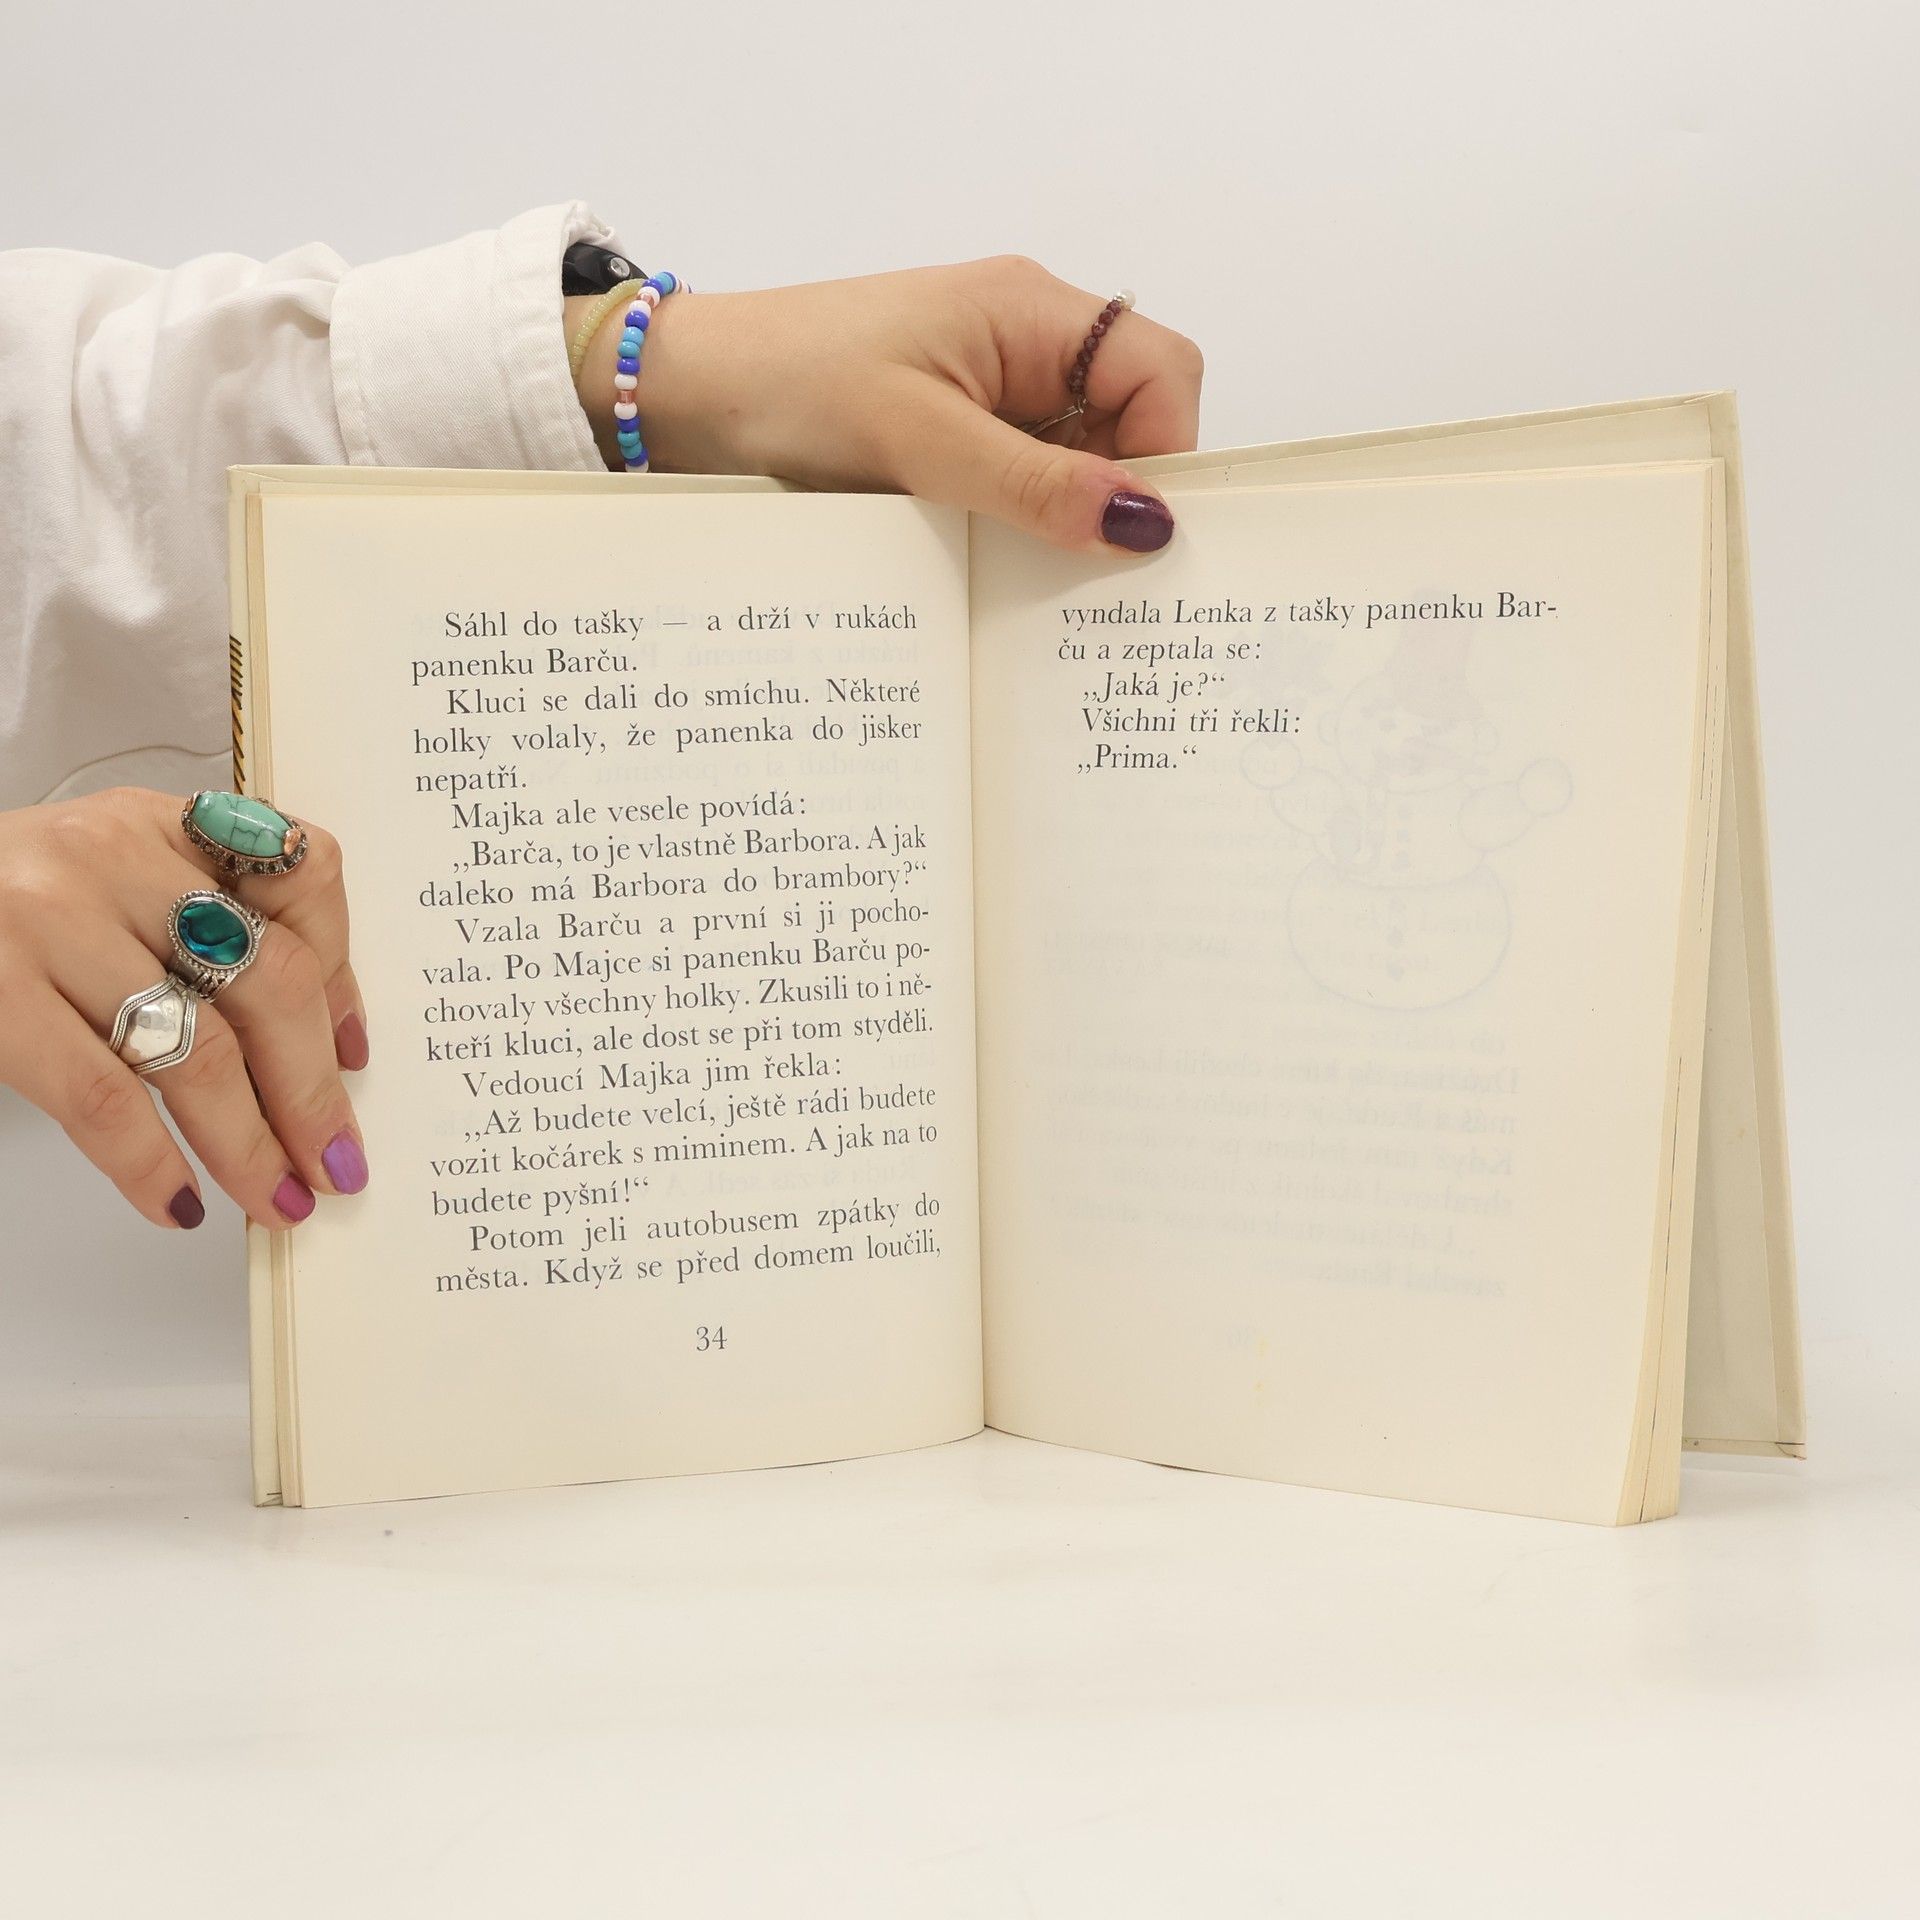 Sáhl do tašky — a drží v rukách
panenku Barču.
Kluci se dali do smíchu. Některé
holky volaly, že panenka do jisker
nepatří.
Majka ale vesele povídá:
,,Barča, to je vlastně Barbora. A jak
daleko má Barbora do brambory?“
Vzala Barču a první si ji pocho-
vala. Po Majce si panenku Barču po-
chovaly všechny holky. Zkusili to i ně-
kteří kluci, ale dost se při tom styděli.
Vedoucí Majka jim řekla:
,,Až budete velcí, ještě rádi budete
vozit kočárek s miminem. A jak na to
budete pyšní!“
Potom jeli autobusem zpátky do
města. Když se před domem loučili,
34
vyndala Lenka z tašky panenku Bar-
ču a zeptala se:
,,Jaká je?“
Všichni tři řekli:
,,Prima.“